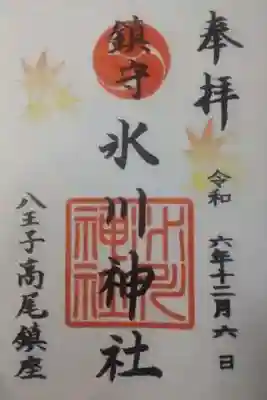 奉拝
令和六年十二月六日
鎮守
氷川神社
氷川神社
八王子高尾鎮座